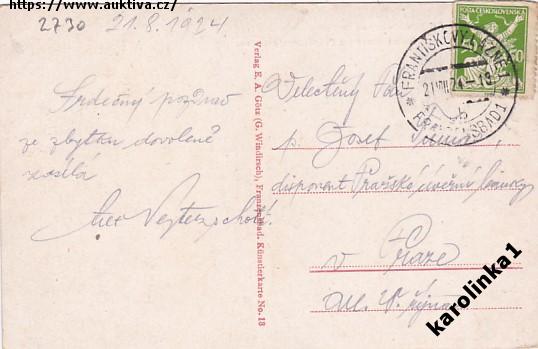 https://www.auktiva.cz/
2730 21.8.1924
POŠTA ČESKOSLOVENSKÁ
FRANTIŠKOVY LÁZNĚ 1
21 VIII 24
FRANZENSBAD 1
Srdečný pozdrav
ze zbytku dovolené
zasílá
Verlag E. A. Götz (G. Windirsch), Franzensbad. Künstlerkarte No. 18
Velectěný Pan
p. Josef
disponent Pražské úvěrní banky
v
Praze
karolinka1